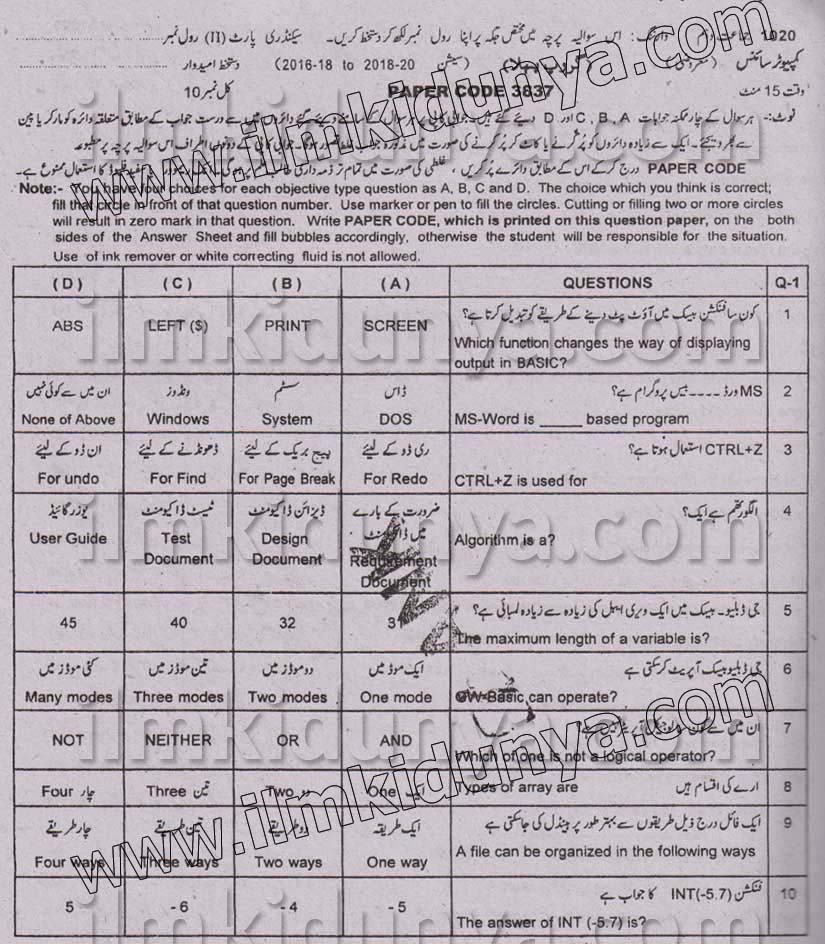 1020 جماعت دہم وارننگ : اس سوالیہ پرچہ میں مختص جگہ پر اپنا رول نمبر لکھ کر دستخط کریں۔ سیکنڈری پارٹ (II) رول نمبر
کمپیوٹر سائنس (سیشن 2016-18 to 2018-20) دستخط امیدوار
وقت 15 منٹ PAPER CODE 3837 کل نمبر 10
نوٹ:- ہر سوال کے چار ممکنہ جوابات C , B , A اور D دیئے گئے ہیں۔ جوابی کاپی پر ہر سوال کے سامنے دیئے گئے دائروں میں سے درست جواب کے مطابق متعلقہ دائرہ کو مارکر یا پین
سے بھر دیجئے۔ ایک سے زیادہ دائروں کو پُر کرنے یا کاٹ کر پُر کرنے کی صورت میں مذکورہ جواب غلط تصور ہوگا۔ جوابی کاپی کے دونوں اطراف اس سوالیہ پرچہ پر مطبوعہ
PAPER CODE درج کر کے اس کے مطابق دائرے پُر کریں، غلطی کی صورت میں تمام تر ذمہ داری طالب علم پر ہوگی۔ کا استعمال ممنوع ہے۔
Note:- You have four choices for each objective type question as A, B, C and D. The choice which you think is correct;
fill that circle in front of that question number. Use marker or pen to fill the circles. Cutting or filling two or more circles
will result in zero mark in that question. Write PAPER CODE, which is printed on this question paper, on the both
sides of the Answer Sheet and fill bubbles accordingly, otherwise the student will be responsible for the situation.
Use of ink remover or white correcting fluid is not allowed.
( D ) ( C ) ( B ) ( A ) QUESTIONS Q-1
کون سا فنکشن بیسک میں آؤٹ پٹ دینے کے طریقے کو تبدیل کرتا ہے؟ 1
ABS LEFT ($) PRINT SCREEN
Which function changes the way of displaying
output in BASIC?
ان میں سے کوئی نہیں ونڈوز سسٹم ڈاس MS ورڈ ---- بیس پروگرام ہے؟ 2
None of Above Windows System DOS MS-Word is _____ based program
ان ڈو کے لیئے ڈھونڈنے کے لیئے پیج بریک کے لیئے ری ڈو کے لیئے CTRL+Z استعمال ہوتا ہے؟ 3
For undo For Find For Page Break For Redo CTRL+Z is used for
یوزر گائیڈ ٹیسٹ ڈاکیومنٹ ڈیزائن ڈاکیومنٹ ضرورت کے بارے میں ڈاکیومنٹ الگورتھم ہے ایک؟ 4
User Guide Test Document Design Document Requirement Document Algorithm is a?
جی ڈبلیو۔ بیسک میں ایک ویری ایبل کی زیادہ سے زیادہ لمبائی ہے؟ 5
45 40 32 The maximum length of a variable is?
کئی موڈز میں تین موڈز میں دو موڈز میں ایک موڈ میں جی ڈبلیو بیسک آپریٹ کر سکتی ہے 6
Many modes Three modes Two modes One mode GW-Basic can operate?
ان میں سے کون 7
NOT NEITHER OR AND Which of one is not a logical operator?
Four چار Three تین Two دو One ایک Types of array are ارے کی اقسام ہیں 8
چار طریقے تین طریقے دو طریقے ایک طریقہ ایک فائل درج ذیل طریقوں سے بہتر طور پر ہینڈل کی جا سکتی ہے 9
Four ways Three ways Two ways One way A file can be organized in the following ways
فنکشن INT(-5.7) کا جواب ہے 10
5 - 6 - 4 - 5 The answer of INT (-5.7) is?
www.ilmkidunya.com
ilmkidunya.com
ilmkidunya.com
ilmkidunya.com
www.ilmkidunya.com
ilmkidunya.com